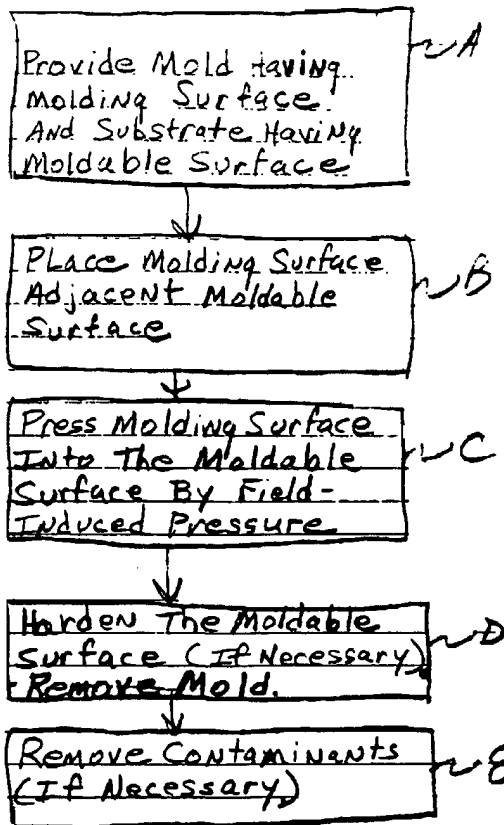 A
Provide Mold Having
Molding Surface
And Substrate Having
Moldable Surface
Place Molding Surface
Adjacent Moldable
Surface
B
Press Molding Surface
Into The Moldable
Surface By Field-
Induced Pressure
C
Harden The Moldable
Surface (If Necessary).
Remove Mold.
D
Remove Contaminants
(If Necessary)
E